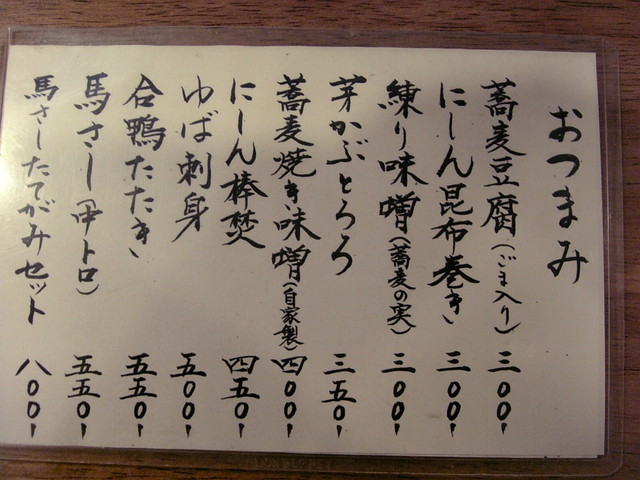 おつまみ
蕎麦豆腐(ごま入り) 三〇〇-
にしん昆布巻き 三〇〇-
練り味噌(蕎麦の実) 三〇〇-
芽かぶとろろ 三五〇-
蕎麦焼き味噌(自家製) 四〇〇-
にしん棒焚 四五〇-
ゆば刺身 五〇〇-
合鴨たたき 五五〇-
馬さし(中トロ) 五五〇-
馬さしたてがみセット 八〇〇-